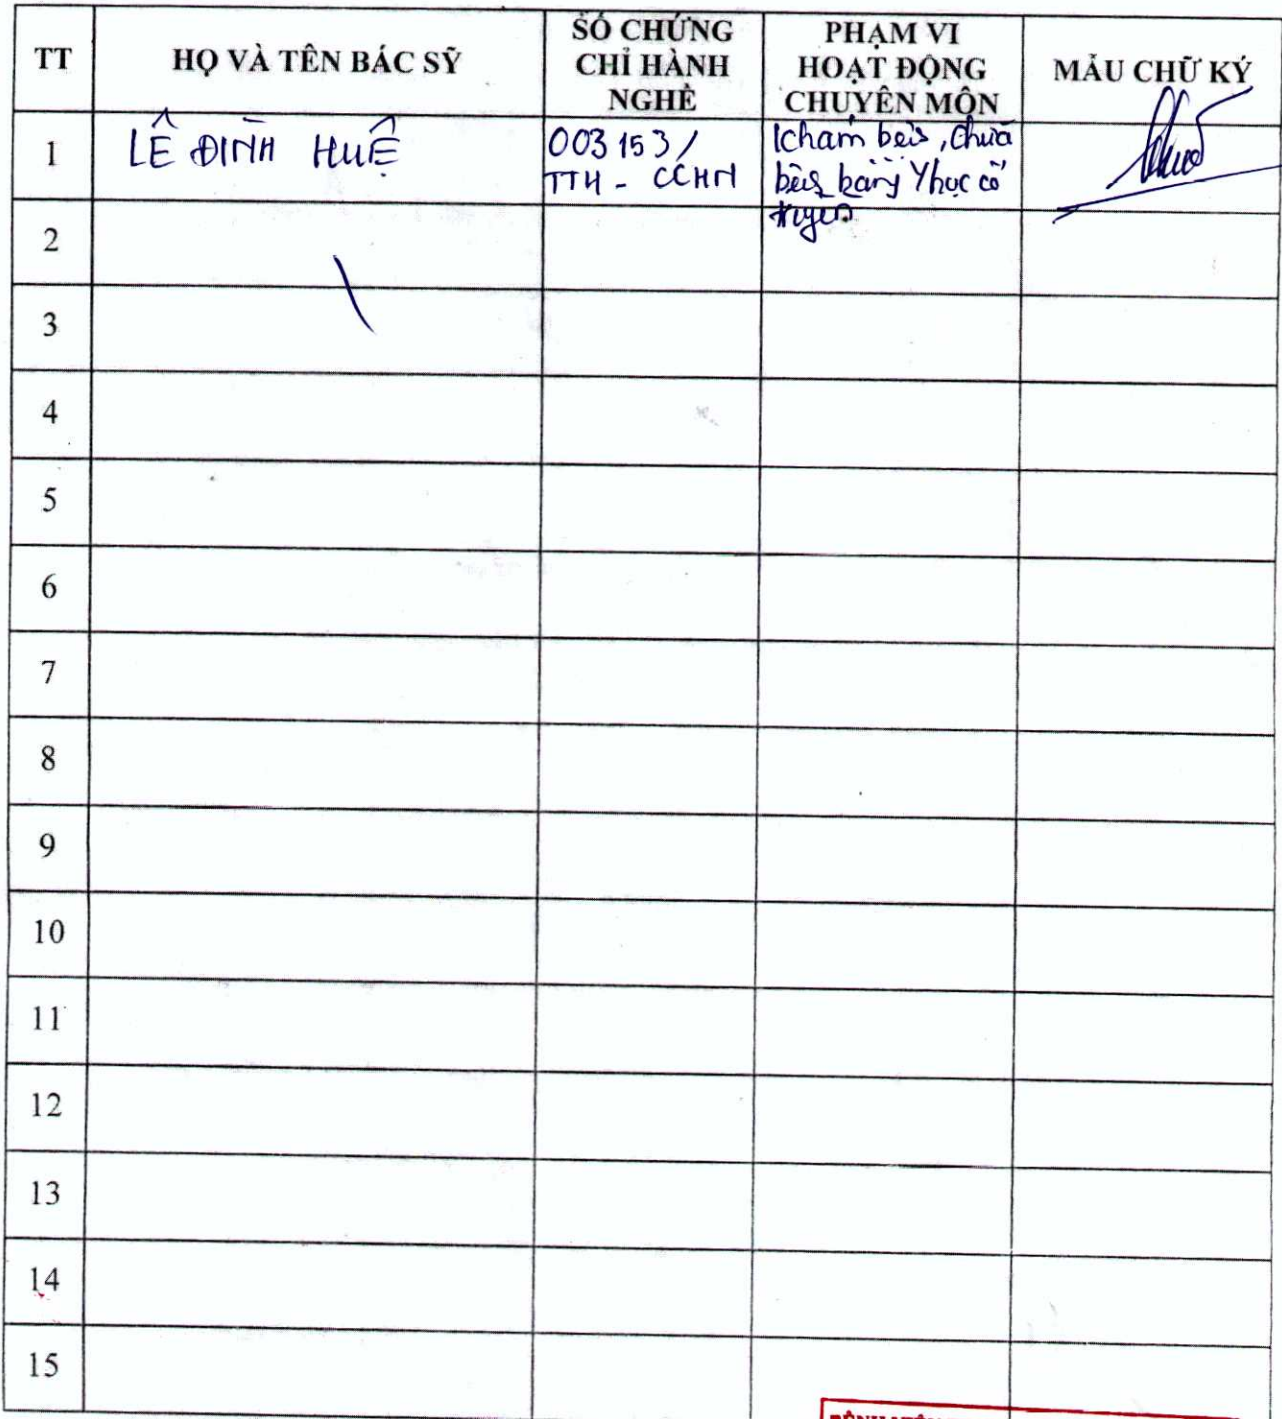 TT
HỌ VÀ TÊN BÁC SỸ
SỐ CHỨNG
CHỈ HÀNH
NGHỀ
PHẠM VI
HOẠT ĐỘNG
CHUYÊN MÔN
MẪU CHỮ KÝ
1
LÊ ĐÌNH HUỆ
003153/
TTH - CCHN
Khám bệnh, chữa
bệnh bằng Y học cổ
truyền
2
3
4
5
6
7
8
9
10
11
12
13
14
15